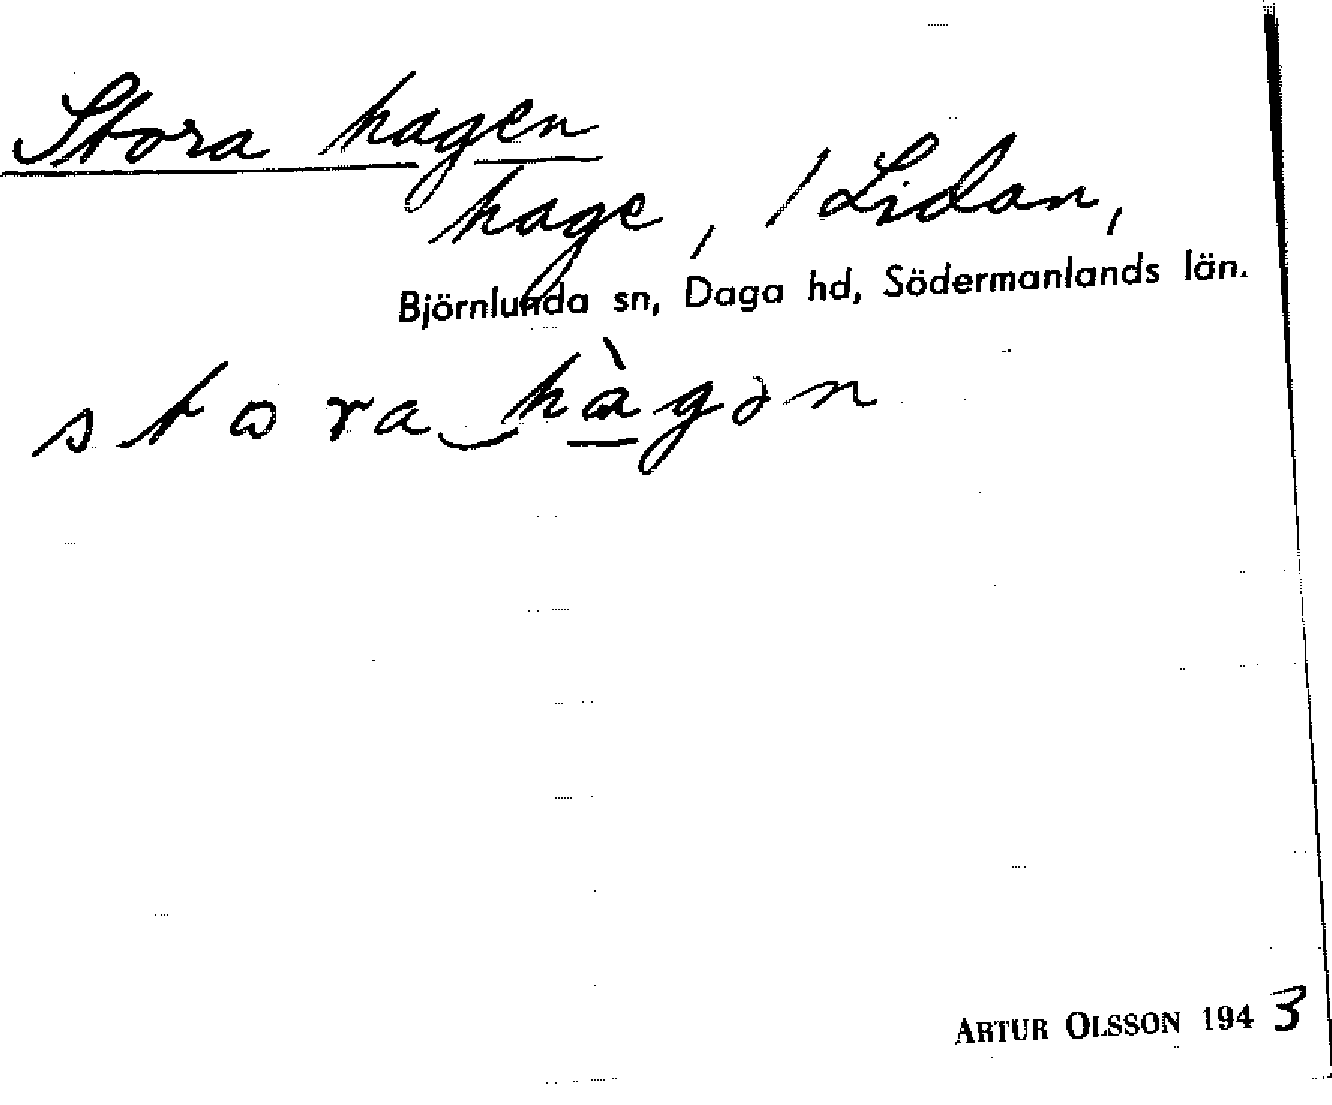 Stora hagen
hage, / Lidan,
Björnlunda sn, Daga hd, Södermanlands län.
stora‿hàgən
ARTUR OLSSON 1943